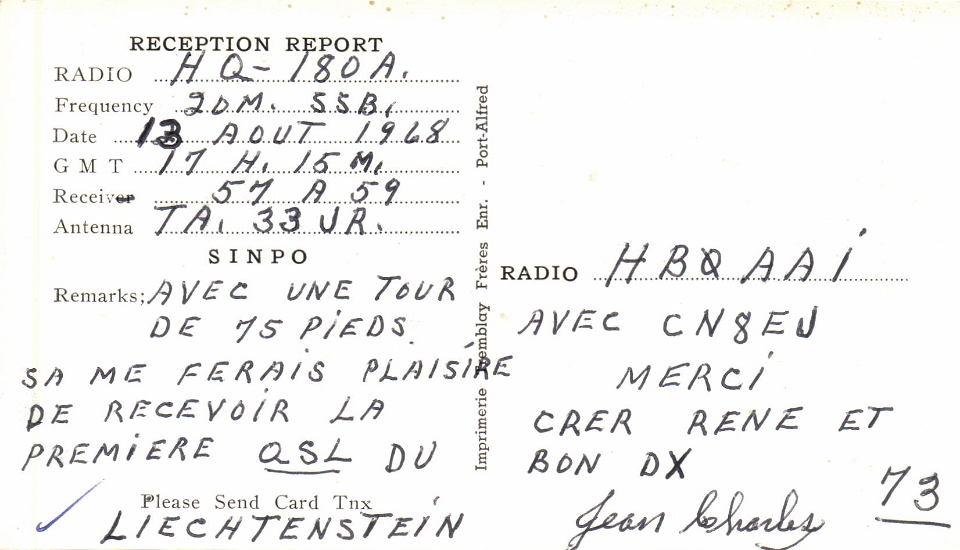 RECEPTION REPORT
RADIO HQ-180A.
Frequency 20M. SSB.
Date 13 AOUT 1968
G M T 17 H. 15 M.
Receiver 57 A 59
Antenna TA. 33 JR.
SINPO
Remarks; AVEC UNE TOUR
DE 75 PIEDS.
SA ME FERAIS PLAISIRE
DE RECEVOIR LA
PREMIERE QSL DU
Please Send Card Tnx
LIECHTENSTEIN
Imprimerie Tremblay Frères Enr. - Port-Alfred
RADIO HBØAAI
AVEC CN8EU
MERCI
CRER RENE ET
BON DX
73
Jean Charles